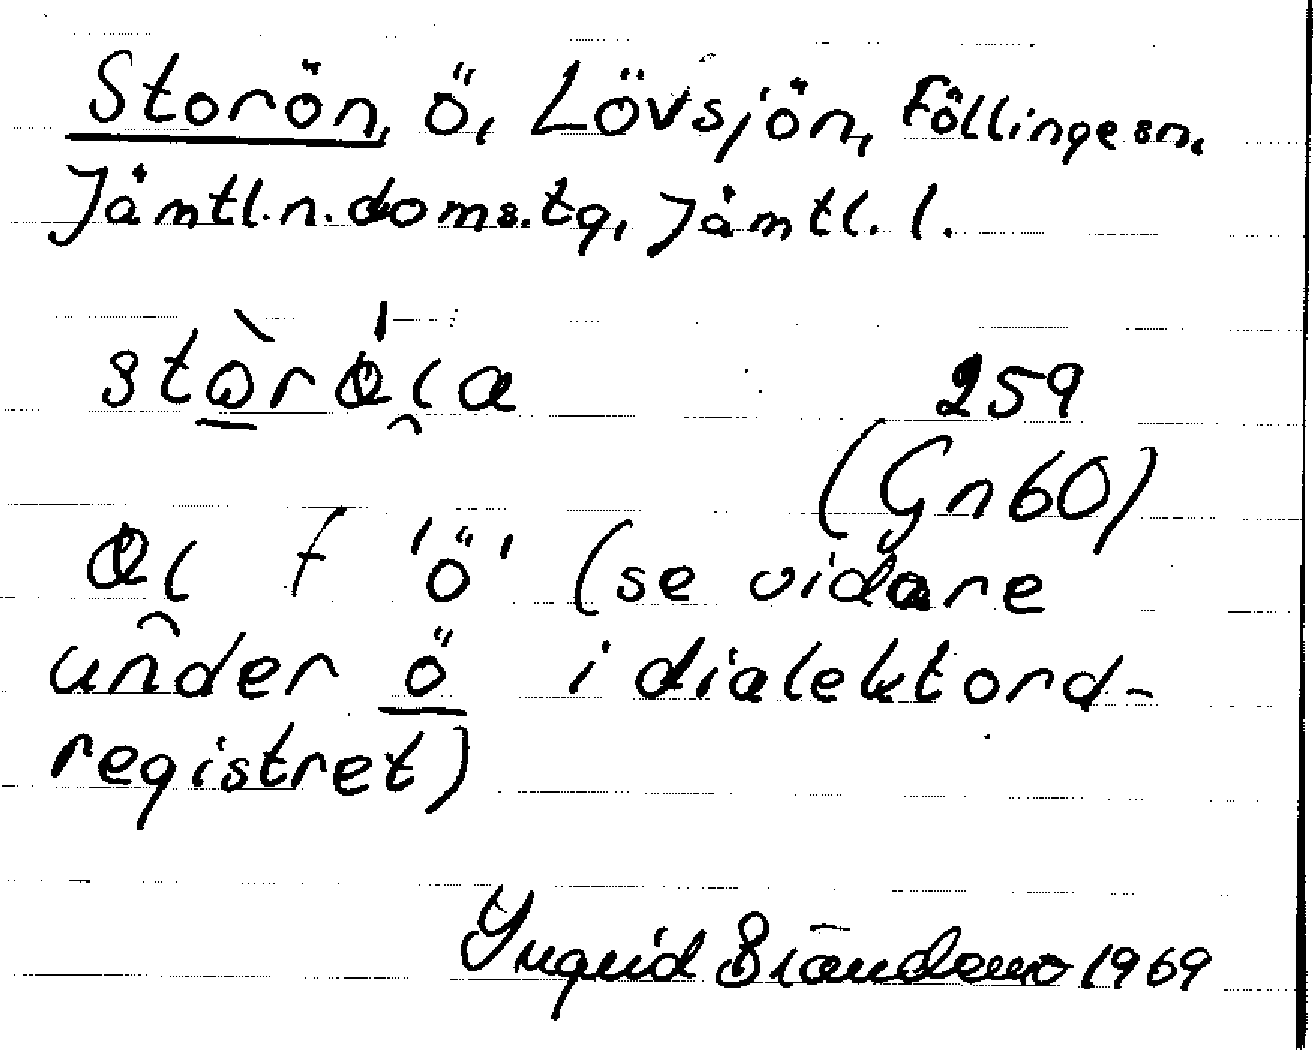 Storön, ö, Lövsjön, Föllinge sn,
Jämtl.n.doms.tg, Jämtl. l.
259
(Gn60)
f 'ö' (se vidare
under ö i dialektord-
registret)
Ingrid Brändemo 1969